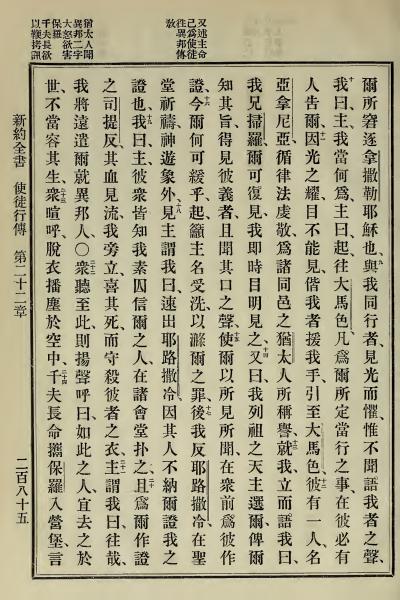 又述主命
己爲使徒
往異邦傳
敎
猶太人聞
異邦二字
大怒欲害
保羅
千夫長欲
以鞭拷訊
爾所窘逐拿撒勒耶穌也、九與我同行者見光而懼、惟不聞語我者之聲、
十我曰、主我當何爲、主曰、起往大馬色、凡爲爾所定當行之事、在彼必有
人告爾、十一因光之耀、目不能見、偕我者援我手、引至大馬色、十二彼有一人名
亞拿尼亞、循律法虔敬、爲諸同邑之猶太人所稱譽、十三就我立而語我曰、
我兄掃羅、爾可復見、我卽時目明見之、十四又曰、我列祖之天主選爾、俾爾
知其旨、得見彼義者、且聞其口之聲、十五使爾以所見所聞、在衆前爲彼作
證、十六今爾何可緩乎、起籲主名受洗、以滌爾之罪、十七後我反耶路撒冷、在聖
堂祈禱、神遊象外、十八見主謂我曰、速出耶路撒冷、因其人不納爾證我之
證也、十九我曰、主、彼衆皆知我素囚信爾之人、在諸會堂扑之、二十且爲爾作證
之司提反、其血見流、我旁立喜其死、而守殺彼者之衣、二十一主謂我曰、往哉、
我將遠遣爾就異邦人、〇二十二衆聽至此、則揚聲呼曰、如此之人、宜去之於
世、不當容其生、二十三衆喧呼、脫衣播塵於空中、二十四千夫長命攜保羅入營、堡言
新約全書 使徒行傳 第二十二章 二百八十五